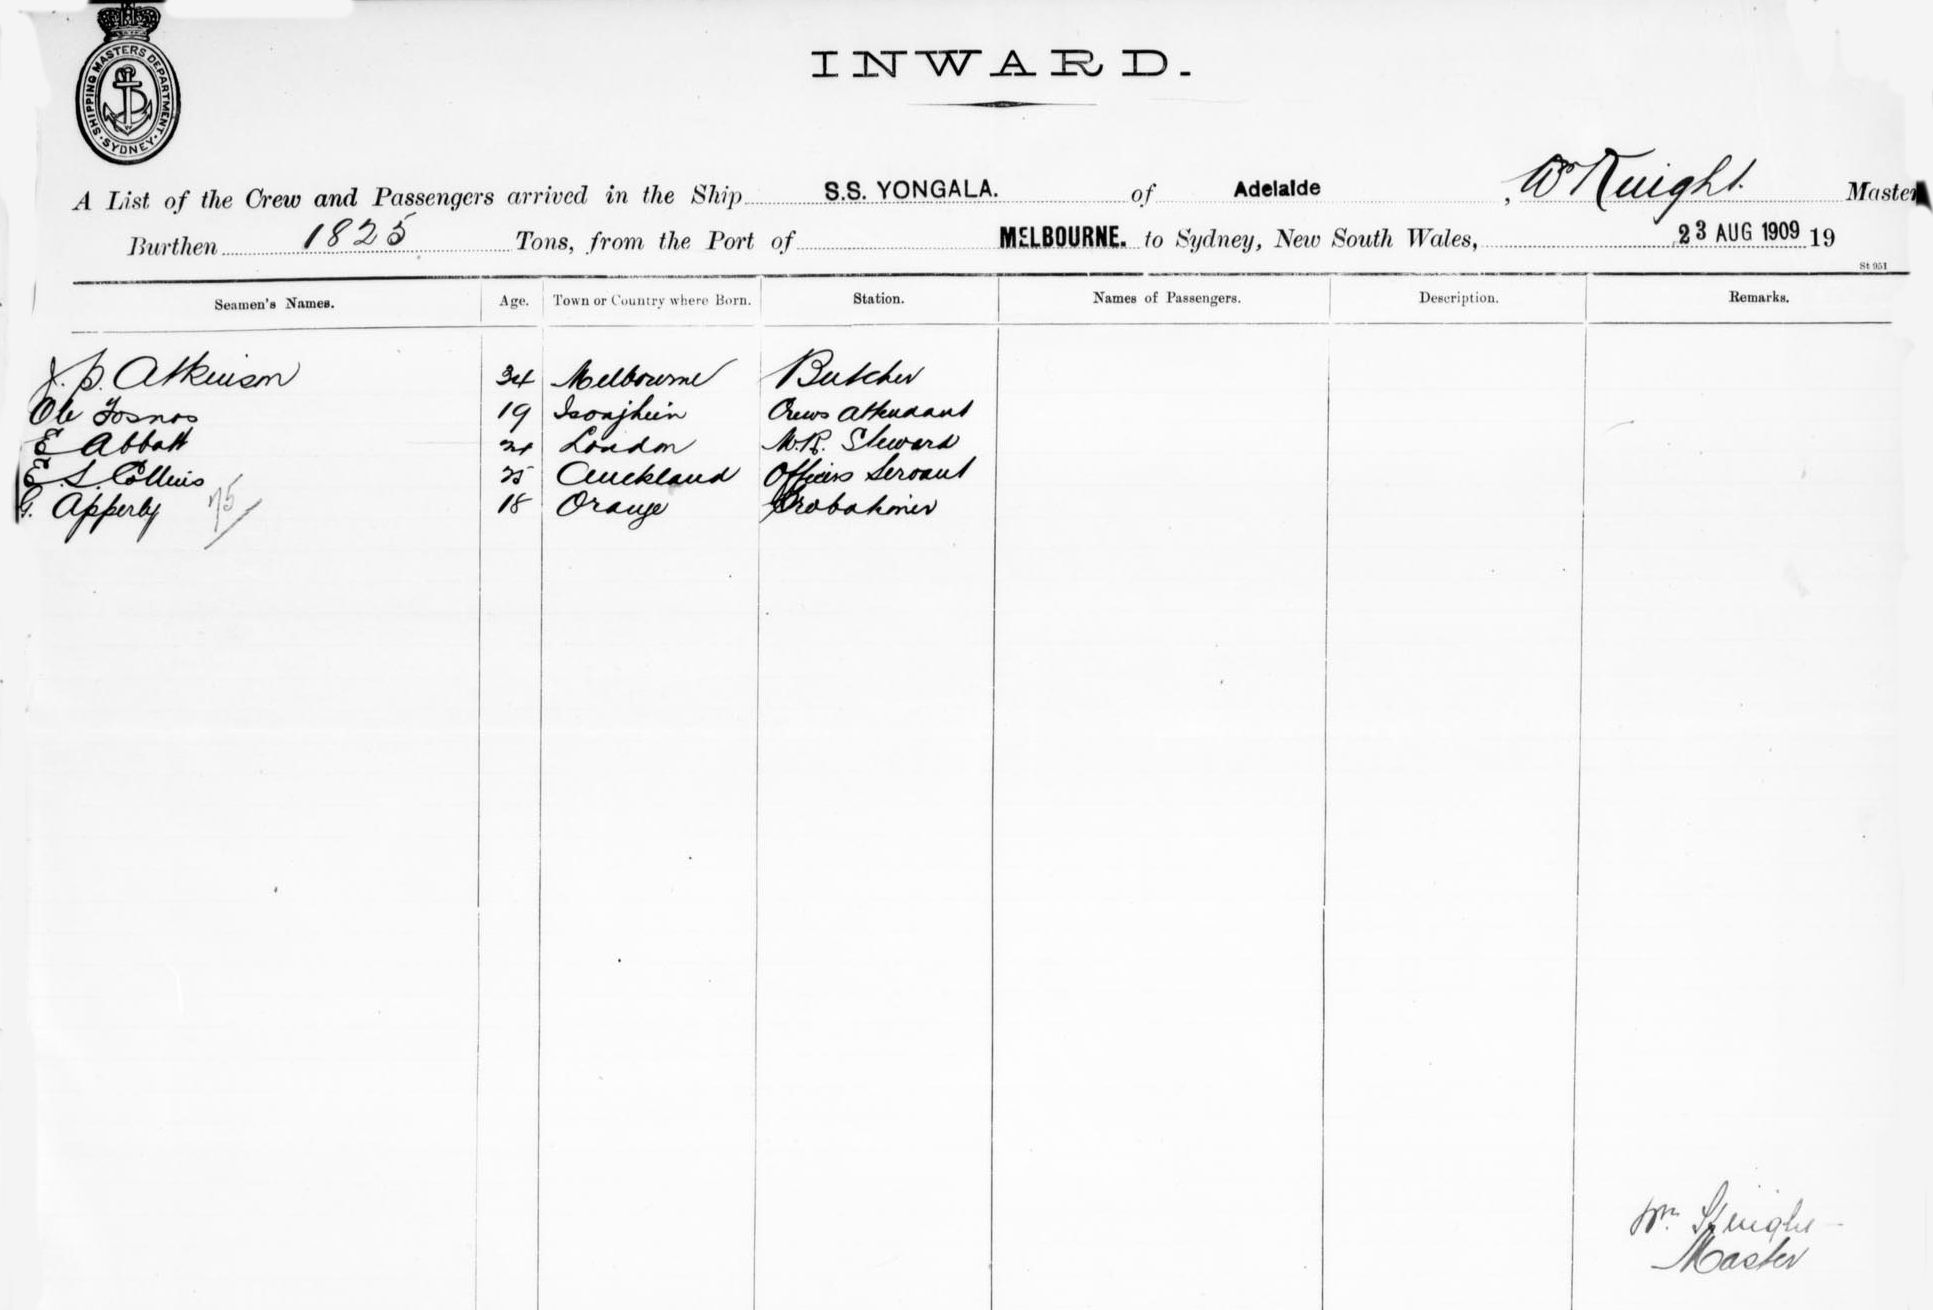 SHIPPING MASTERS DEPARTMENT
SYDNEY
INWARD.
A List of the Crew and Passengers arrived in the Ship S.S. YONGALA. of Adelaide, Wm Knight. Master
Burthen 1825 Tons, from the Port of MELBOURNE. to Sydney, New South Wales, 23 AUG 1909 19
St 951
Seamen's Names. Age. Town or Country where Born. Station. Names of Passengers. Description. Remarks.
Atkinson 34 Melbourne Butcher
Ole Fosnos 19 Crews Attendant
E Abbott London W.R. Steward
E. S. Collins 25 Auckland Officers Servant
G. Apperly 75/ 18 Orange Probationer
Wm Knight
Master